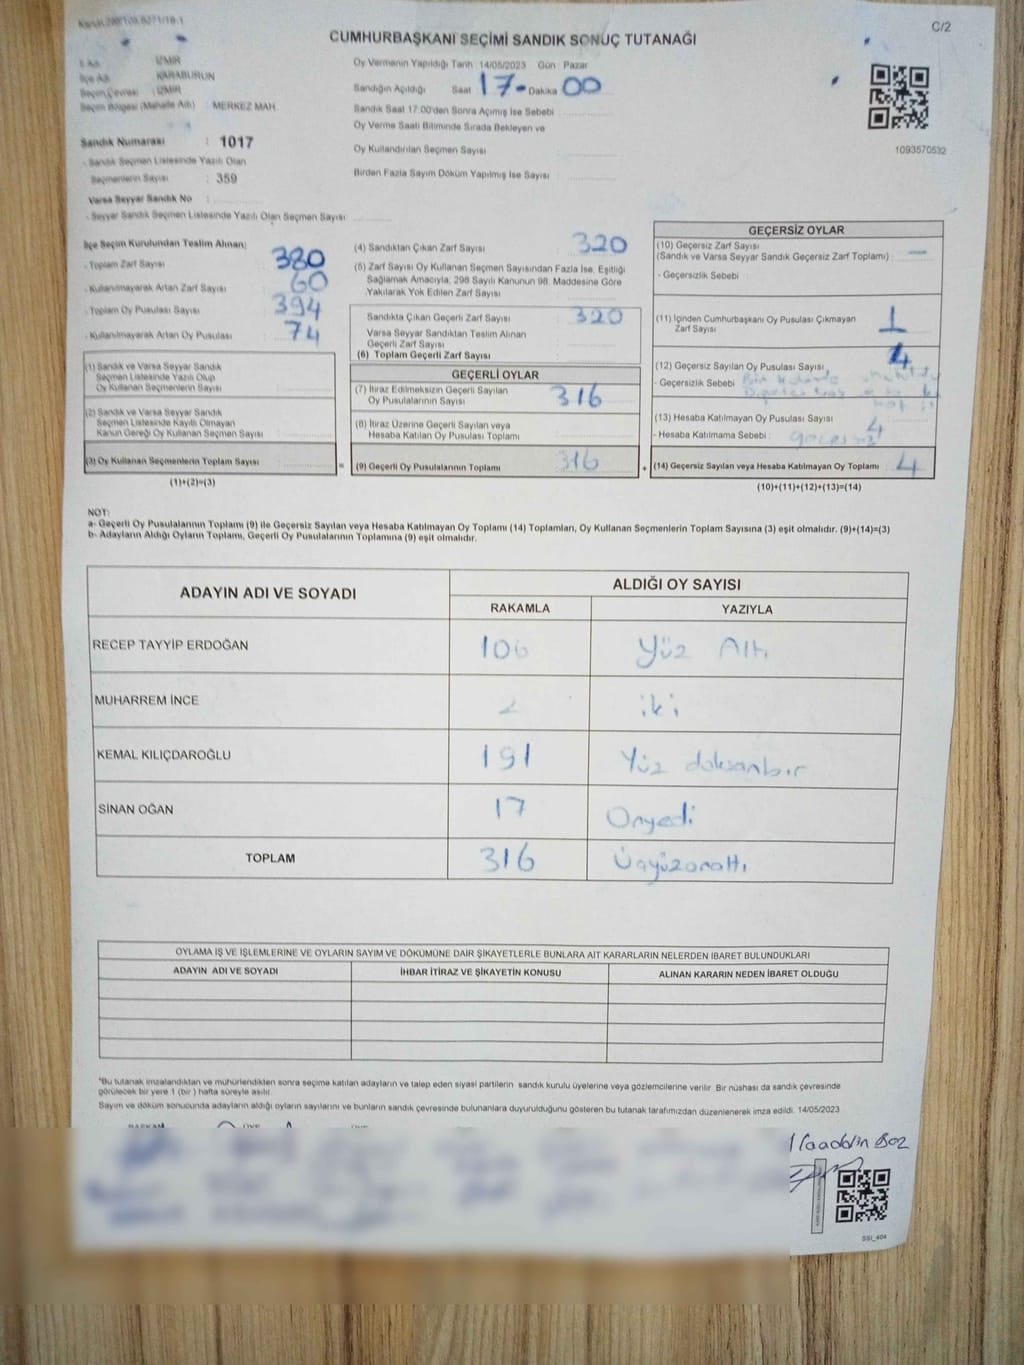 C/2
CUMHURBAŞKANI SEÇİMİ SANDIK SONUÇ TUTANAĞI
İl Adı : İZMİR
İlçe Adı : KARABURUN
Seçim Çevresi : İZMİR
Seçim Bölgesi (Mahalle Adı) : MERKEZ MAH.
Sandık Numarası : 1017
- Sandık Seçmen Listesinde Yazılı Olan
Seçmenlerin Sayısı : 359
Varsa Seyyar Sandık No :
- Seyyar Sandık Seçmen Listesinde Yazılı Olan Seçmen Sayısı:
Oy Vermenin Yapıldığı Tarih 14/05/2023 Gün Pazar
Sandığın Açıldığı Saat 17- Dakika 00
Sandık Saat 17:00'den Sonra Açımış İse Sebebi
Oy Verme Saati Bitiminde Sırada Bekleyen ve
Oy Kullandırılan Seçmen Sayısı
Birden Fazla Sayım Döküm Yapılmış İse Sayısı
1093570532
İlçe Seçim Kurulundan Teslim Alınan:
- Toplam Zarf Sayısı : 380
- Kullanılmayarak Artan Zarf Sayısı : 60
- Toplam Oy Pusulası Sayısı : 394
- Kullanılmayarak Artan Oy Pusulası : 74
(1) Sandık ve Varsa Seyyar Sandık
Seçmen Listesinde Yazılı Olup
Oy Kullanan Seçmenlerin Sayısı :
(2) Sandık ve Varsa Seyyar Sandık
Seçmen Listesinde Kayıtlı Olmayan
Kanun Gereği Oy Kullanan Seçmen Sayısı :
(3) Oy Kullanan Seçmenlerin Toplam Sayısı :
(1)+(2)=(3)
(4) Sandıktan Çıkan Zarf Sayısı : 320
(5) Zarf Sayısı Oy Kullanan Seçmen Sayısından Fazla İse, Eşitliği
Sağlamak Amacıyla, 298 Sayılı Kanunun 98. Maddesine Göre
Yakılarak Yok Edilen Zarf Sayısı :
Sandıkta Çıkan Geçerli Zarf Sayısı : 320
Varsa Seyyar Sandıktan Teslim Alınan
Geçerli Zarf Sayısı :
(6) Toplam Geçerli Zarf Sayısı :
GEÇERLİ OYLAR
(7) İtiraz Edilmeksizin Geçerli Sayılan
Oy Pusulalarının Sayısı : 316
(8) İtiraz Üzerine Geçerli Sayılan veya
Hesaba Katılan Oy Pusulası Toplamı :
= (9) Geçerli Oy Pusulalarının Toplamı : 316
GEÇERSİZ OYLAR
(10) Geçersiz Zarf Sayısı
(Sandık ve Varsa Seyyar Sandık Geçersiz Zarf Toplamı) : -
- Geçersizlik Sebebi :
(11) İçinden Cumhurbaşkanı Oy Pusulası Çıkmayan
Zarf Sayısı : 1
(12) Geçersiz Sayılan Oy Pusulası Sayısı : 4
- Geçersizlik Sebebi :
(13) Hesaba Katılmayan Oy Pusulası Sayısı : 4
- Hesaba Katılmama Sebebi : geçersiz
+ (14) Geçersiz Sayılan veya Hesaba Katılmayan Oy Toplamı : 4
(10)+(11)+(12)+(13)=(14)
NOT:
a- Geçerli Oy Pusulalarının Toplamı (9) ile Geçersiz Sayılan veya Hesaba Katılmayan Oy Toplamı (14) Toplamları, Oy Kullanan Seçmenlerin Toplam Sayısına (3) eşit olmalıdır. (9)+(14)=(3)
b- Adayların Aldığı Oyların Toplamı, Geçerli Oy Pusulalarının Toplamına (9) eşit olmalıdır.
ADAYIN ADI VE SOYADI ALDIĞI OY SAYISI
RAKAMLA YAZIYLA
RECEP TAYYİP ERDOĞAN 106 Yüz Altı
MUHARREM İNCE 2 iki
KEMAL KILIÇDAROĞLU 191 Yüz doksanbir
SİNAN OĞAN 17 Onyedi
TOPLAM 316 Üçyüzonaltı
OYLAMA İŞ VE İŞLEMLERİNE VE OYLARIN SAYIM VE DÖKÜMÜNE DAİR ŞİKAYETLERLE BUNLARA AİT KARARLARIN NELERDEN İBARET BULUNDUKLARI
ADAYIN ADI VE SOYADI İHBAR İTİRAZ VE ŞİKAYETİN KONUSU ALINAN KARARIN NEDEN İBARET OLDUĞU
*Bu tutanak imzalandıktan ve mühürlendikten sonra seçime katılan adayların ve talep eden siyasi partilerin sandık kurulu üyelerine veya gözlemcilerine verilir. Bir nüshası da sandık çevresinde
görülecek bir yere 1 (bir ) hafta süreyle asılır.
Sayım ve döküm sonucunda adayların aldığı oyların sayılarını ve bunların sandık çevresinde bulunanlara duyurulduğunu gösteren bu tutanak tarafımızdan düzenlenerek imza edildi. 14/05/2023
SSI_404